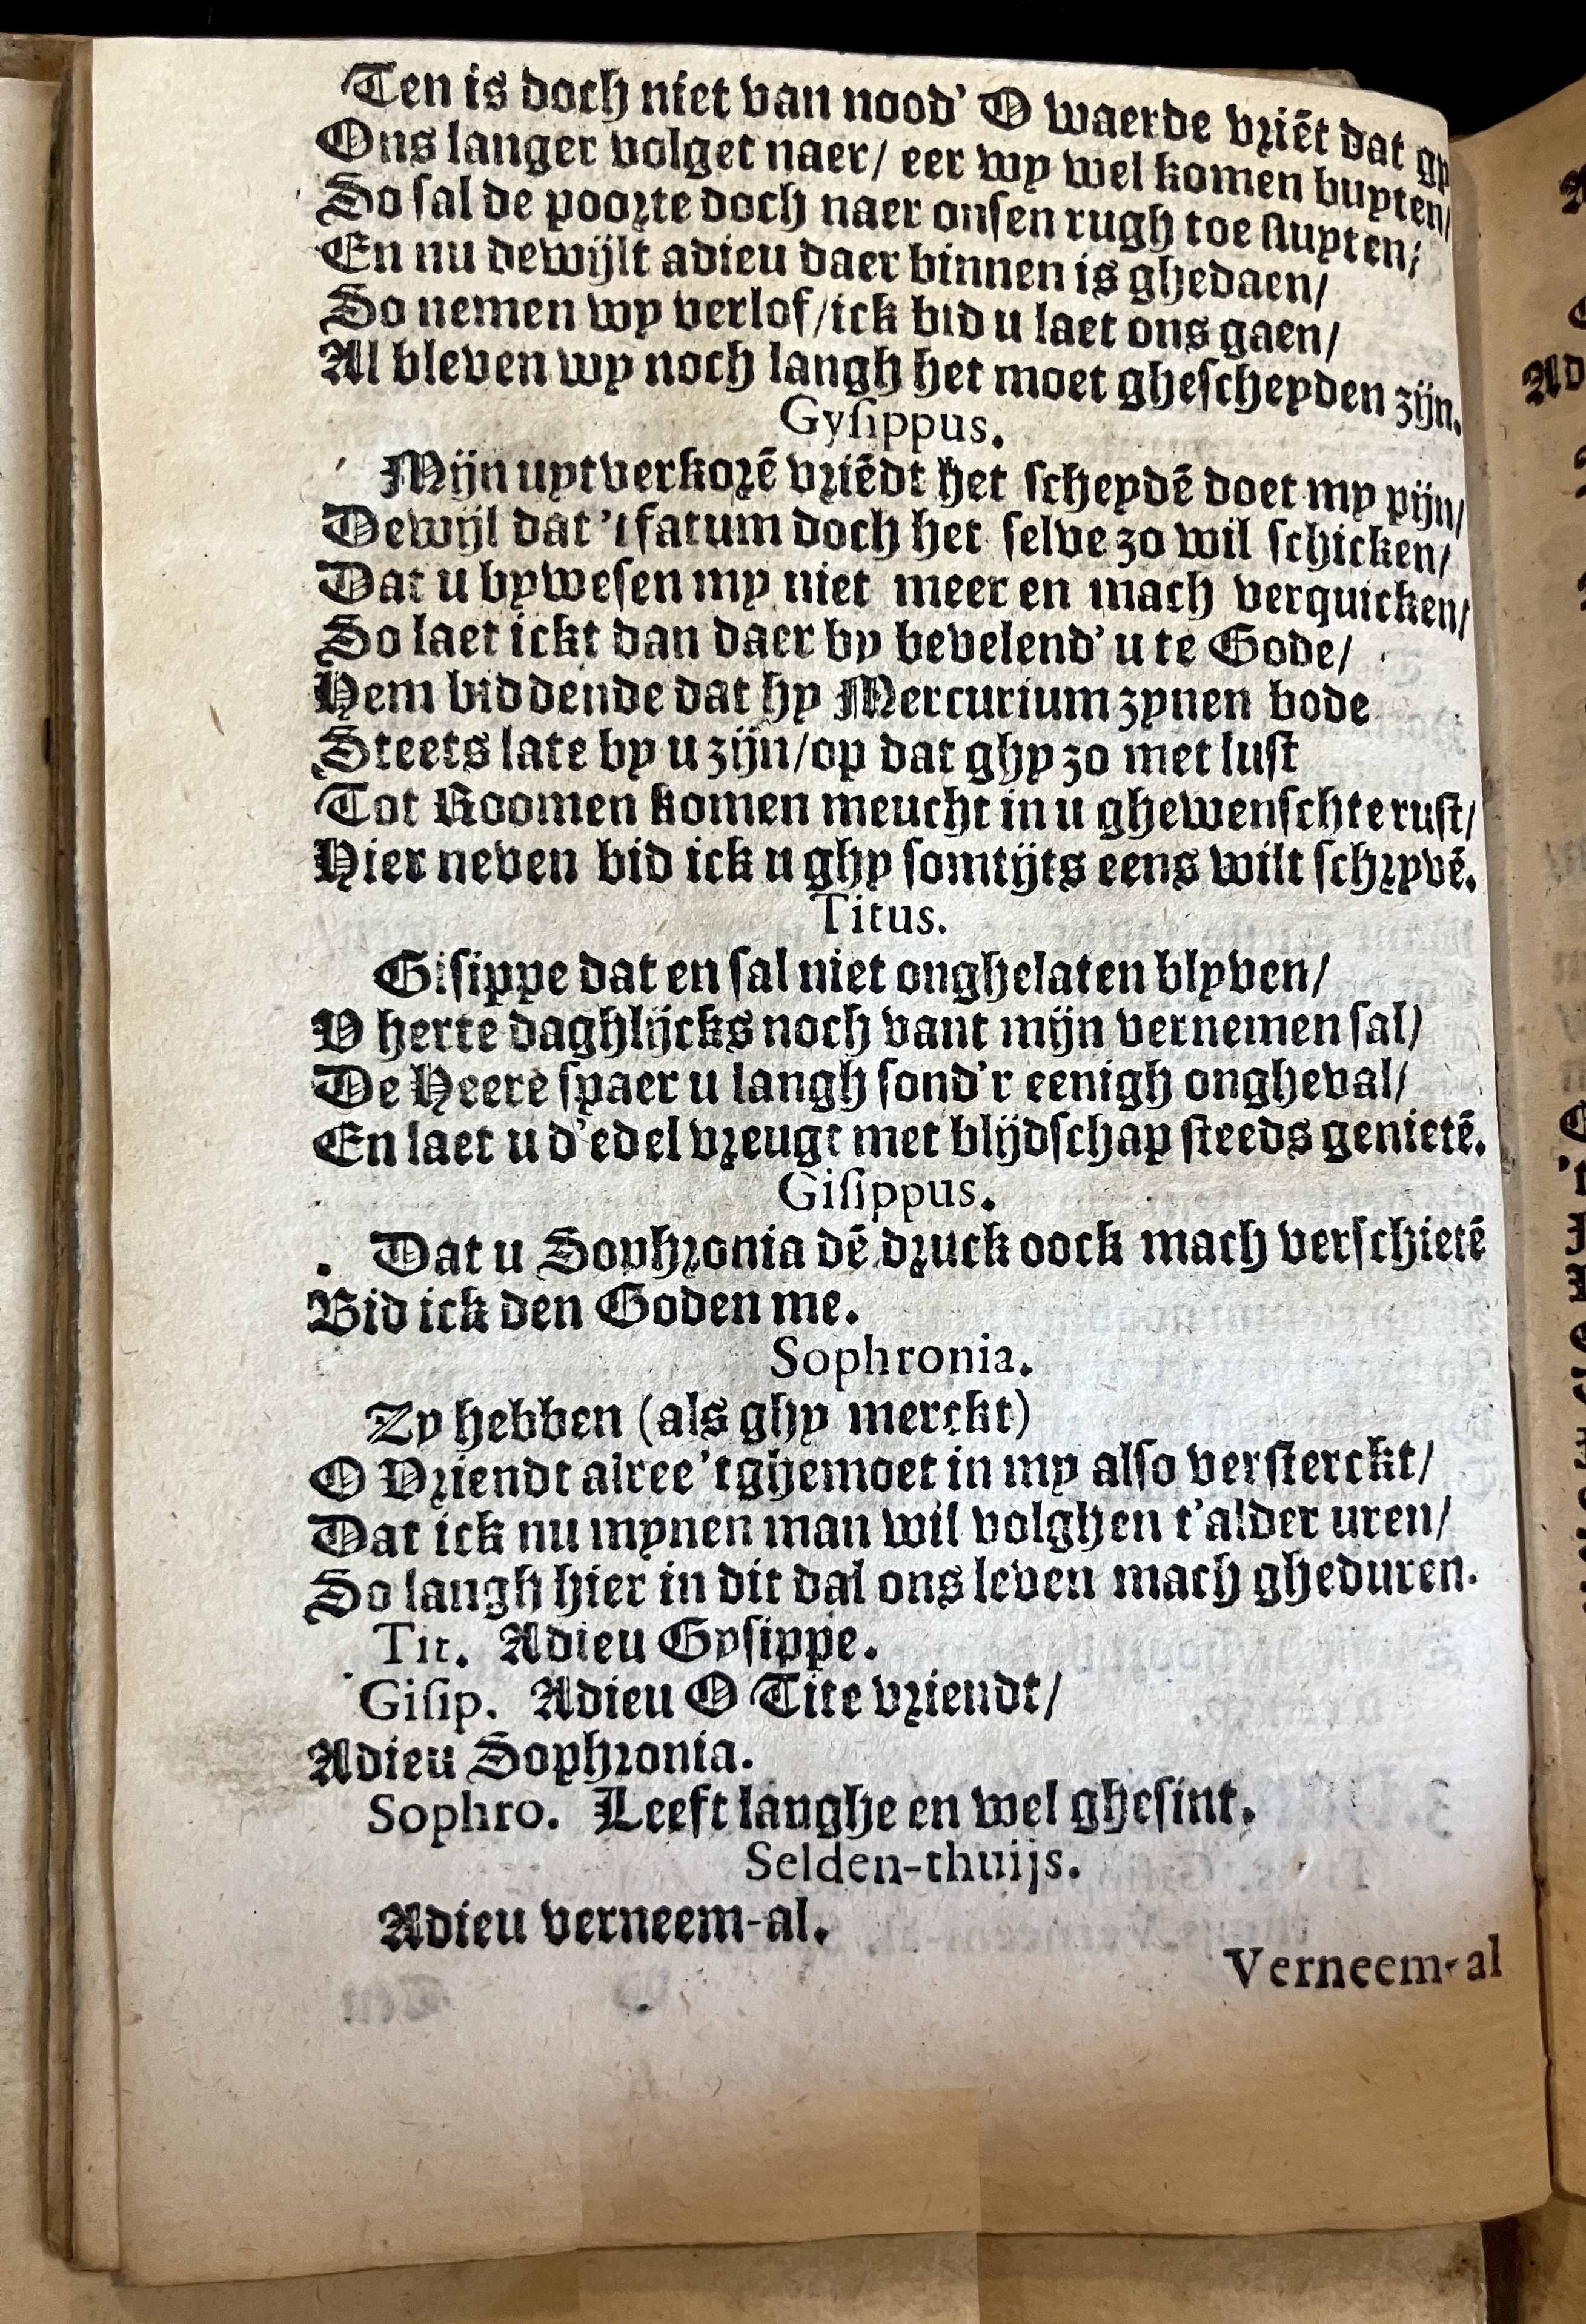 Ten is doch niet van nood' O waerde vriēt dat gy
Ons langer volget naer/ eer wy wel komen buyten/
So sal de poorte doch naer onsen rugh toe sluyten/
En nu dewijlt adieu daer binnen is ghedaen/
So nemen wy verlof/ick bid u laet ons gaen/
Al bleven wy noch langh het moet ghescheyden zijn.
Gysippus.
Mijn uytverkorē vriēdt het scheydē doet my pijn/
Dewijl dat 't fatum doch het selve zo wil schicken/
Dat u bywesen my niet meer en mach verquicken/
So laet ickt dan daer by bevelend' u te Gode/
Hem biddende dat hy Mercurium zynen bode
Steets late by u zijn/op dat ghy zo met lust
Tot Roomen komen meucht in u ghewenschte rust/
Hier neven bid ick u ghy somtijts eens wilt schryvē.
Titus.
Gisippe dat en sal niet onghelaten blyven/
V herte daghlijcks noch vant mijn vernemen sal/
De Heere spaer u langh sond'r eenigh ongheval/
En laet u d'edel vreugt met blijdschap steeds genietē.
Gisippus.
Dat u Sophronia dē druck oock mach verschietē
Bid ick den Goden me.
Sophronia.
Zy hebben (als ghy merckt)
O Vriendt alree 't ghemoet in my also versterckt/
Dat ick nu mynen man wil volghen t'alder uren/
So langh hier in dit dal ons leven mach gheduren.
Tit. Adieu Gysippe.
Gisip. Adieu O Tite vriendt/
Adieu Sophronia.
Sophro. Leeft langhe en wel ghesint.
Selden-thuijs.
Adieu verneem-al.
Verneem-al